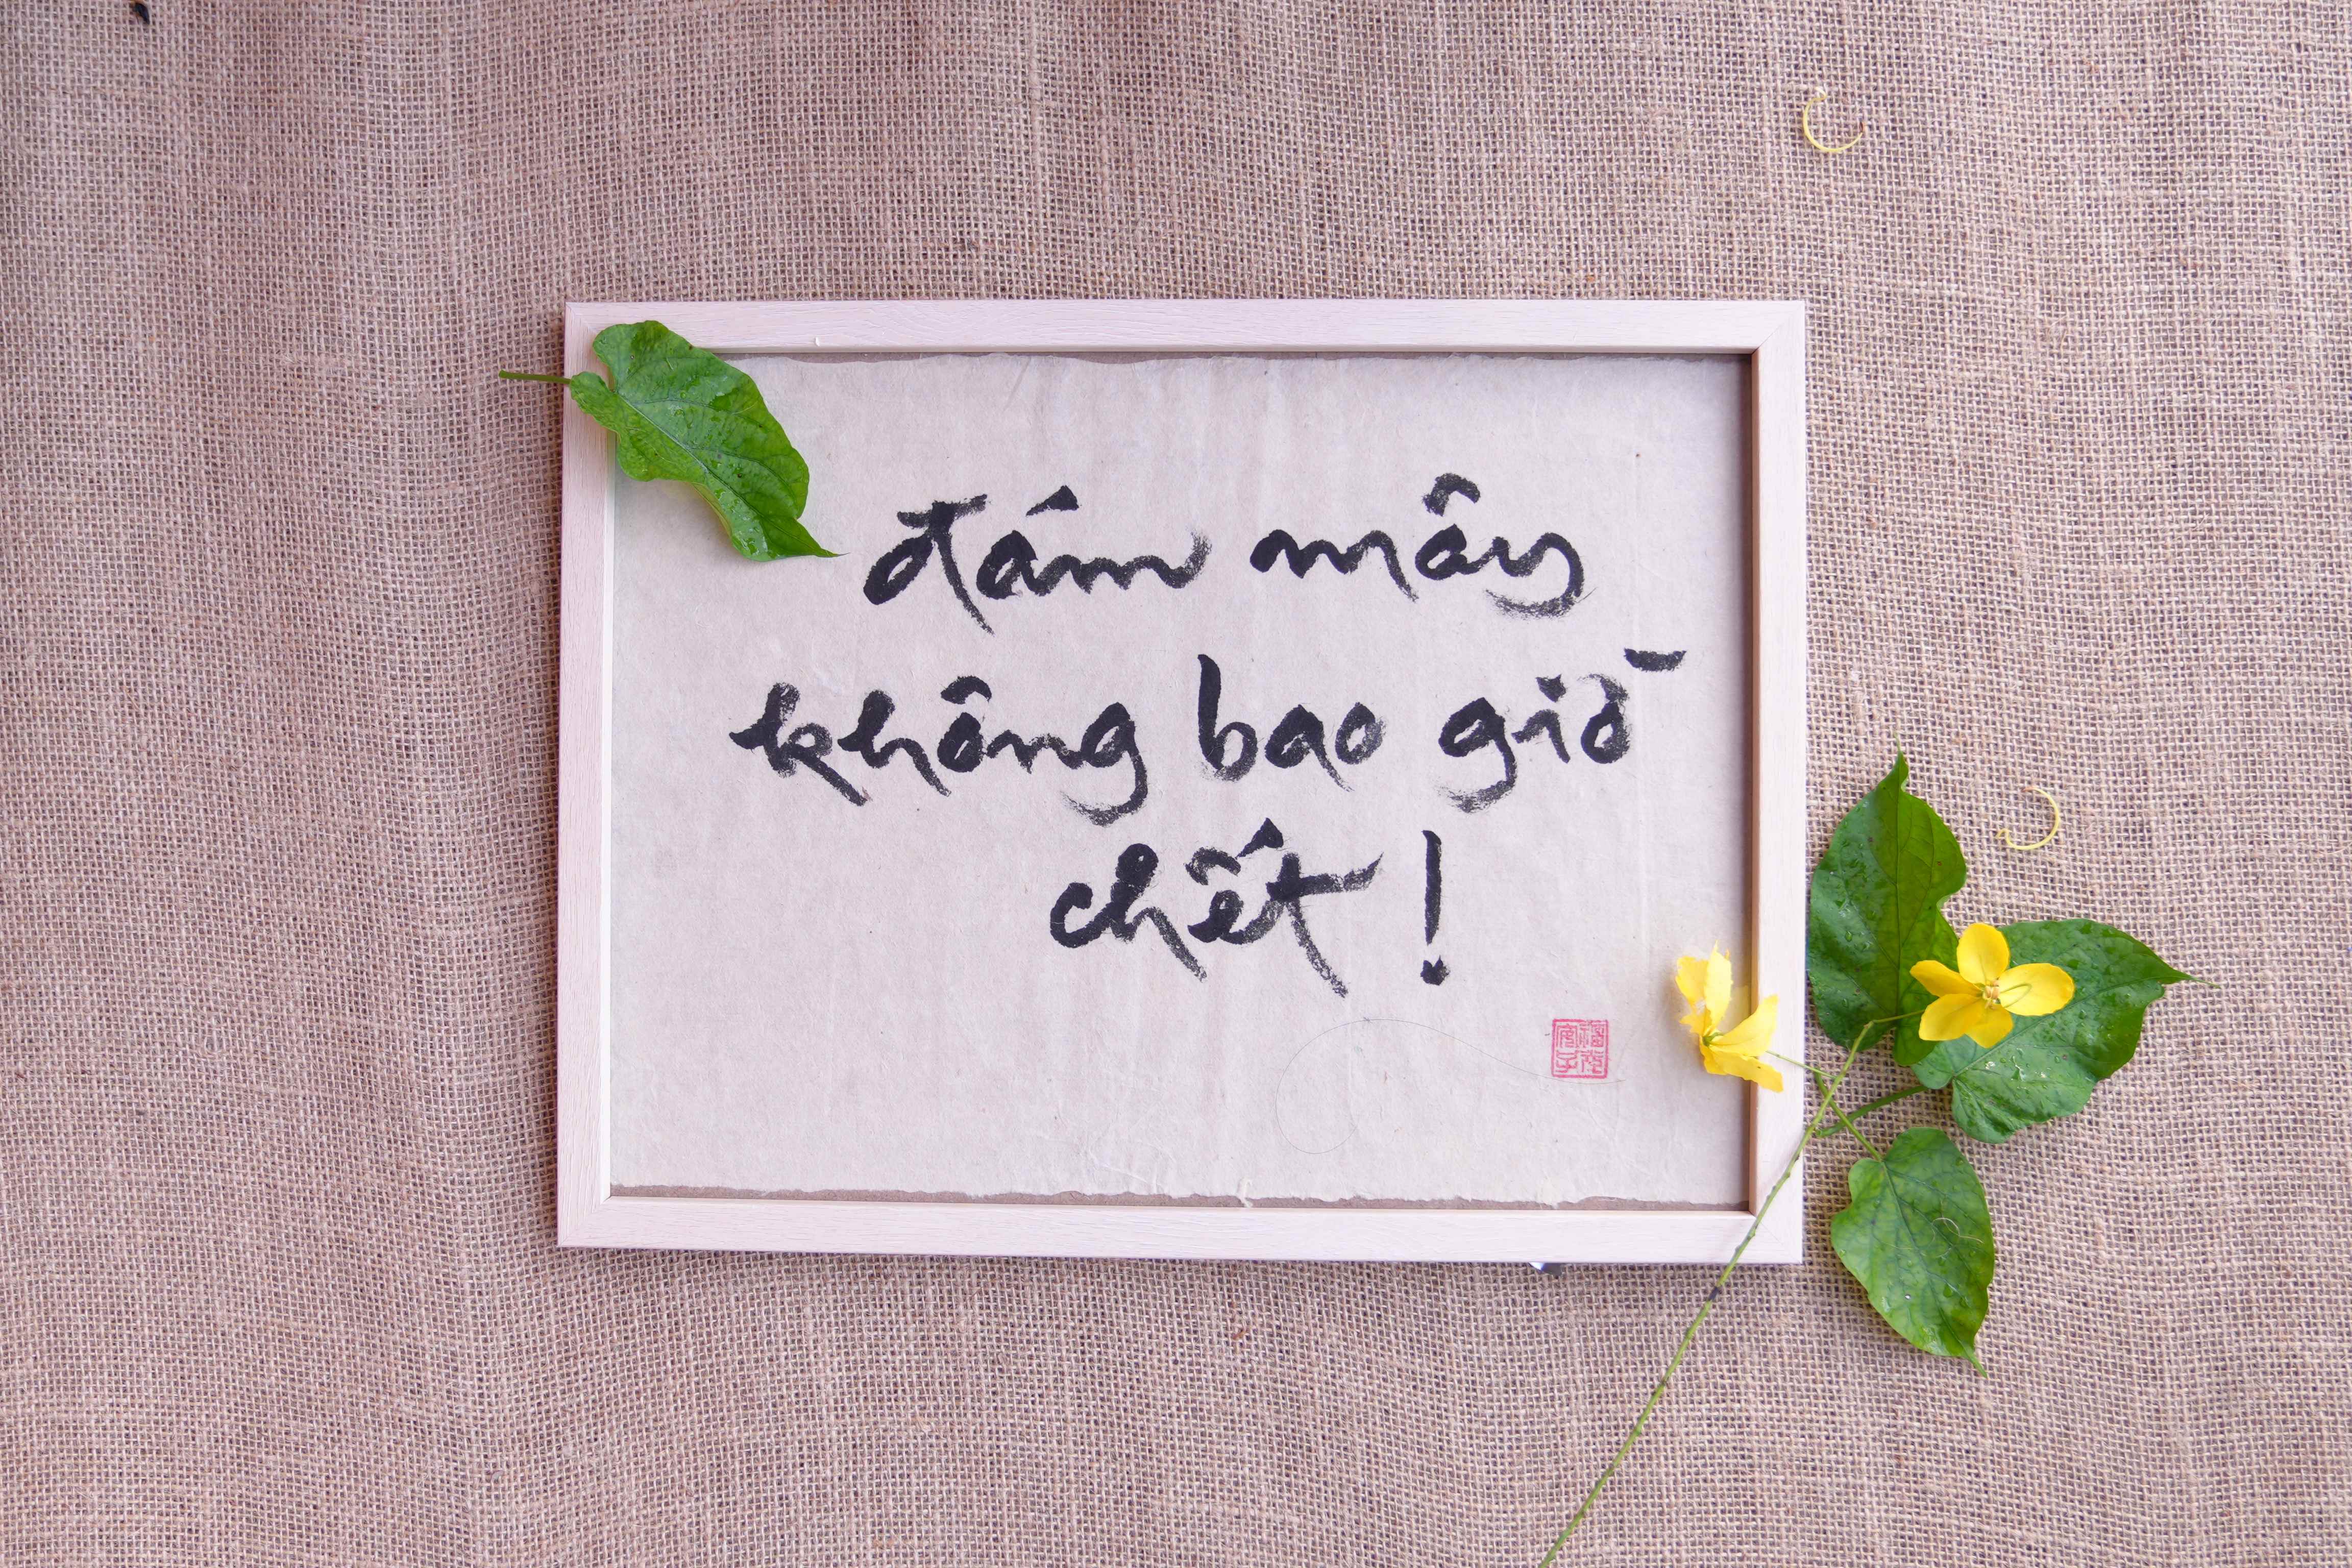 đám mây
không bao giờ
chết !